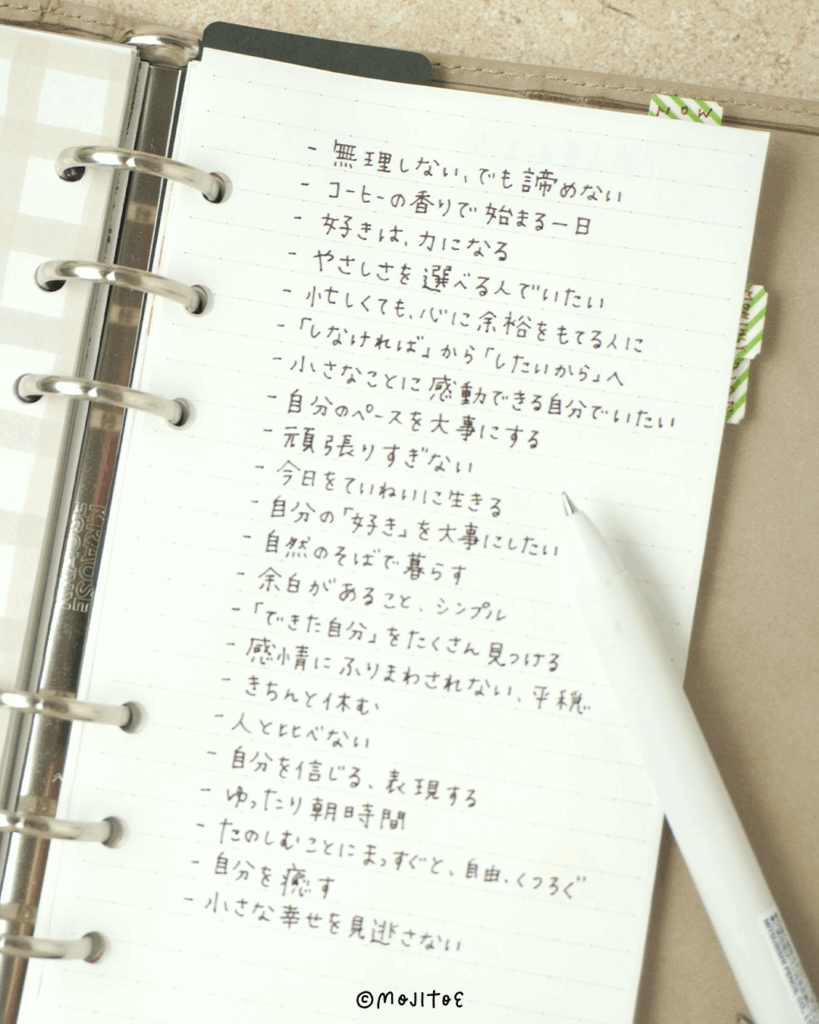 NOW
- 無理しない、でも諦めない
- コーヒーの香りで始まる一日
- 好きは、力になる
- やさしさを選べる人でいたい
- 忙しくても、心に余裕をもてる人に
- 「しなければ」から「したいから」へ
- 小さなことに感動できる自分でいたい
- 自分のペースを大事にする
- 頑張りすぎない
- 今日をていねいに生きる
- 自分の「好き」を大事にしたい
- 自然のそばで暮らす
- 余白があること、シンプル
- 「できた自分」をたくさん見つける
- 感情にふりまわされない、平穏
- きちんと休む
- 人と比べない
- 自分を信じる、表現する
- ゆったり朝時間
- たのしむことにまっすぐと、自由、くつろぐ
- 自分を癒す
- 小さな幸せを見逃さない
KRAUSE
©MOJITOE